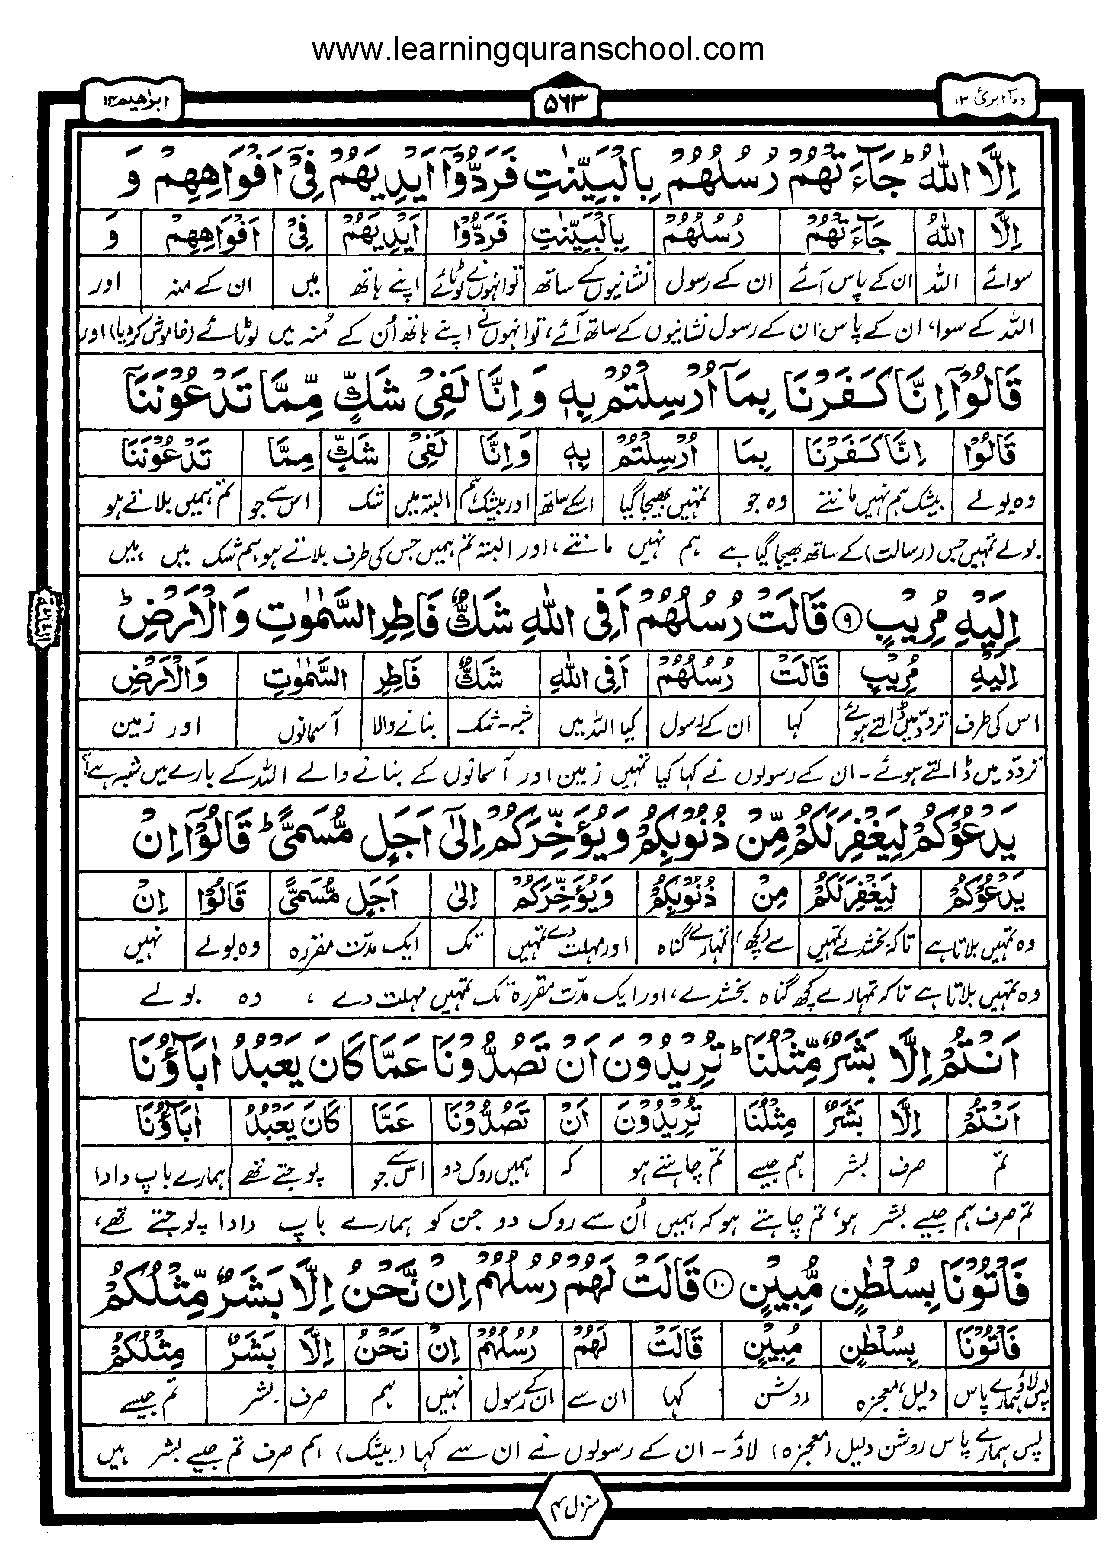 www.learningquranschool.com
ابرٰهيم ١٤
٥٦٣
وما ابرئ ١٣
اِلَّا اللّٰهُ ۛؕ جَآءَتْهُمْ رُسُلُهُمْ بِالْبَيِّنٰتِ فَرَدُّوْۤا اَيْدِيَهُمْ فِىْۤ اَفْوَاهِهِمْ وَ
اِلَّا اللّٰهُ جَآءَتْهُمْ رُسُلُهُمْ بِالْبَيِّنٰتِ فَرَدُّوْۤا اَيْدِيَهُمْ فِىْۤ اَفْوَاهِهِمْ وَ
سوائے اللہ ان کے پاس آئے ان کے رسول نشانیوں کے ساتھ تو انہوں نے لوٹائے اپنے ہاتھ میں ان کے منہ اور
اللہ کے سوا، ان کے پاس ان کے رسول نشانیوں کے ساتھ آئے، تو انہوں نے اپنے ہاتھ اُن کے مُنہ میں لوٹائے (خاموش کر دیا) اور
قَالُوْۤا اِنَّا كَفَرْنَا بِمَاۤ اُرْسِلْتُمْ بِهٖ وَاِنَّا لَفِىْ شَكٍّ مِّمَّا تَدْعُوْنَنَاۤ
قَالُوْۤا اِنَّا كَفَرْنَا بِمَاۤ اُرْسِلْتُمْ بِهٖ وَاِنَّا لَفِىْ شَكٍّ مِمَّا تَدْعُوْنَنَا
وہ بولے بیشک ہم نہیں مانتے وہ جو تمہیں بھیجا گیا اسکے ساتھ اور بیشک ہم البتہ میں شک اس سے جو تم ہمیں بلاتے ہو
بولے تمہیں جس (رسالت) کے ساتھ بھیجا گیا ہے ہم نہیں مانتے، اور البتہ تم ہمیں جس کی طرف بلاتے ہو ہم شک میں ہیں
اِلَيْهِ مُرِيْبٍ ۹ قَالَتْ رُسُلُهُمْ اَفِى اللّٰهِ شَكٌّ فَاطِرِ السَّمٰوٰتِ وَالْاَرْضِ ؕ
اِلَيْهِ مُرِيْبٍ قَالَتْ رُسُلُهُمْ اَفِى اللّٰهِ شَكٌّ فَاطِرِ السَّمٰوٰتِ وَالْاَرْضِ
اس کی طرف تردد میں ڈالتے ہوئے کہا ان کے رسول کیا اللہ میں شبہ۔شک بنانے والا آسمانوں اور زمین
تردّد میں ڈالتے ہوئے۔ ان کے رسولوں نے کہا کیا نہیں زمین اور آسمانوں کے بنانے والے اللہ کے بارے میں شبہ ہے؟
يَدْعُوْكُمْ لِيَغْفِرَلَكُمْ مِّنْ ذُنُوْبِكُمْ وَيُؤَخِّرَكُمْ اِلٰٓى اَجَلٍ مُّسَمًّى ؕ قَالُوْۤا اِنْ
يَدْعُوْكُمْ لِيَغْفِرَلَكُمْ مِنْ ذُنُوْبِكُمْ وَيُؤَخِّرَكُمْ اِلٰى اَجَلٍ مُّسَمًّى قَالُوْۤا اِنْ
وہ تمہیں بلاتا ہے تاکہ بخشدے تمہیں سے (کچھ) تمہارے گناہ اور مہلت دے تمہیں تک ایک مدّت مقررہ وہ بولے نہیں
وہ تمہیں بلاتا ہے تاکہ تمہارے کچھ گناہ بخشدے، اور ایک مدّت مقررہ تک تمہیں مہلت دے ، وہ بولے
اَنْتُمْ اِلَّا بَشَرٌ مِّثْلُنَا ؕ تُرِيْدُوْنَ اَنْ تَصُدُّوْنَا عَمَّا كَانَ يَعْبُدُ اٰبَآؤُنَا
اَنْتُمْ اِلَّا بَشَرٌ مِثْلُنَا تُرِيْدُوْنَ اَنْ تَصُدُّوْنَا عَمَّا كَانَ يَعْبُدُ اٰبَآؤُنَا
تم صرف بشر ہم جیسے تم چاہتے ہو کہ ہمیں روک دو اس سے جو پوجتے تھے ہمارے باپ دادا
تم صرف ہم جیسے بشر ہو، تم چاہتے ہو کہ ہمیں اُن سے روک دو جن کو ہمارے باپ دادا پوجتے تھے،
فَاْتُوْنَا بِسُلْطٰنٍ مُّبِيْنٍ ۱۰ قَالَتْ لَهُمْ رُسُلُهُمْ اِنْ نَّحْنُ اِلَّا بَشَرٌ مِّثْلُكُمْ
فَاْتُوْنَا بِسُلْطٰنٍ مُبِيْنٍ قَالَتْ لَهُمْ رُسُلُهُمْ اِنْ نَحْنُ اِلَّا بَشَرٌ مِثْلُكُمْ
پس لاؤ ہمارے پاس دلیل، معجزہ روشن کہا ان سے ان کے رسول نہیں ہم صرف بشر تم جیسے
پس ہمارے پاس روشن دلیل (معجزہ) لاؤ۔ ان کے رسولوں نے ان سے کہا (بیشک) ہم صرف تم جیسے بشر ہیں
منزل ۳